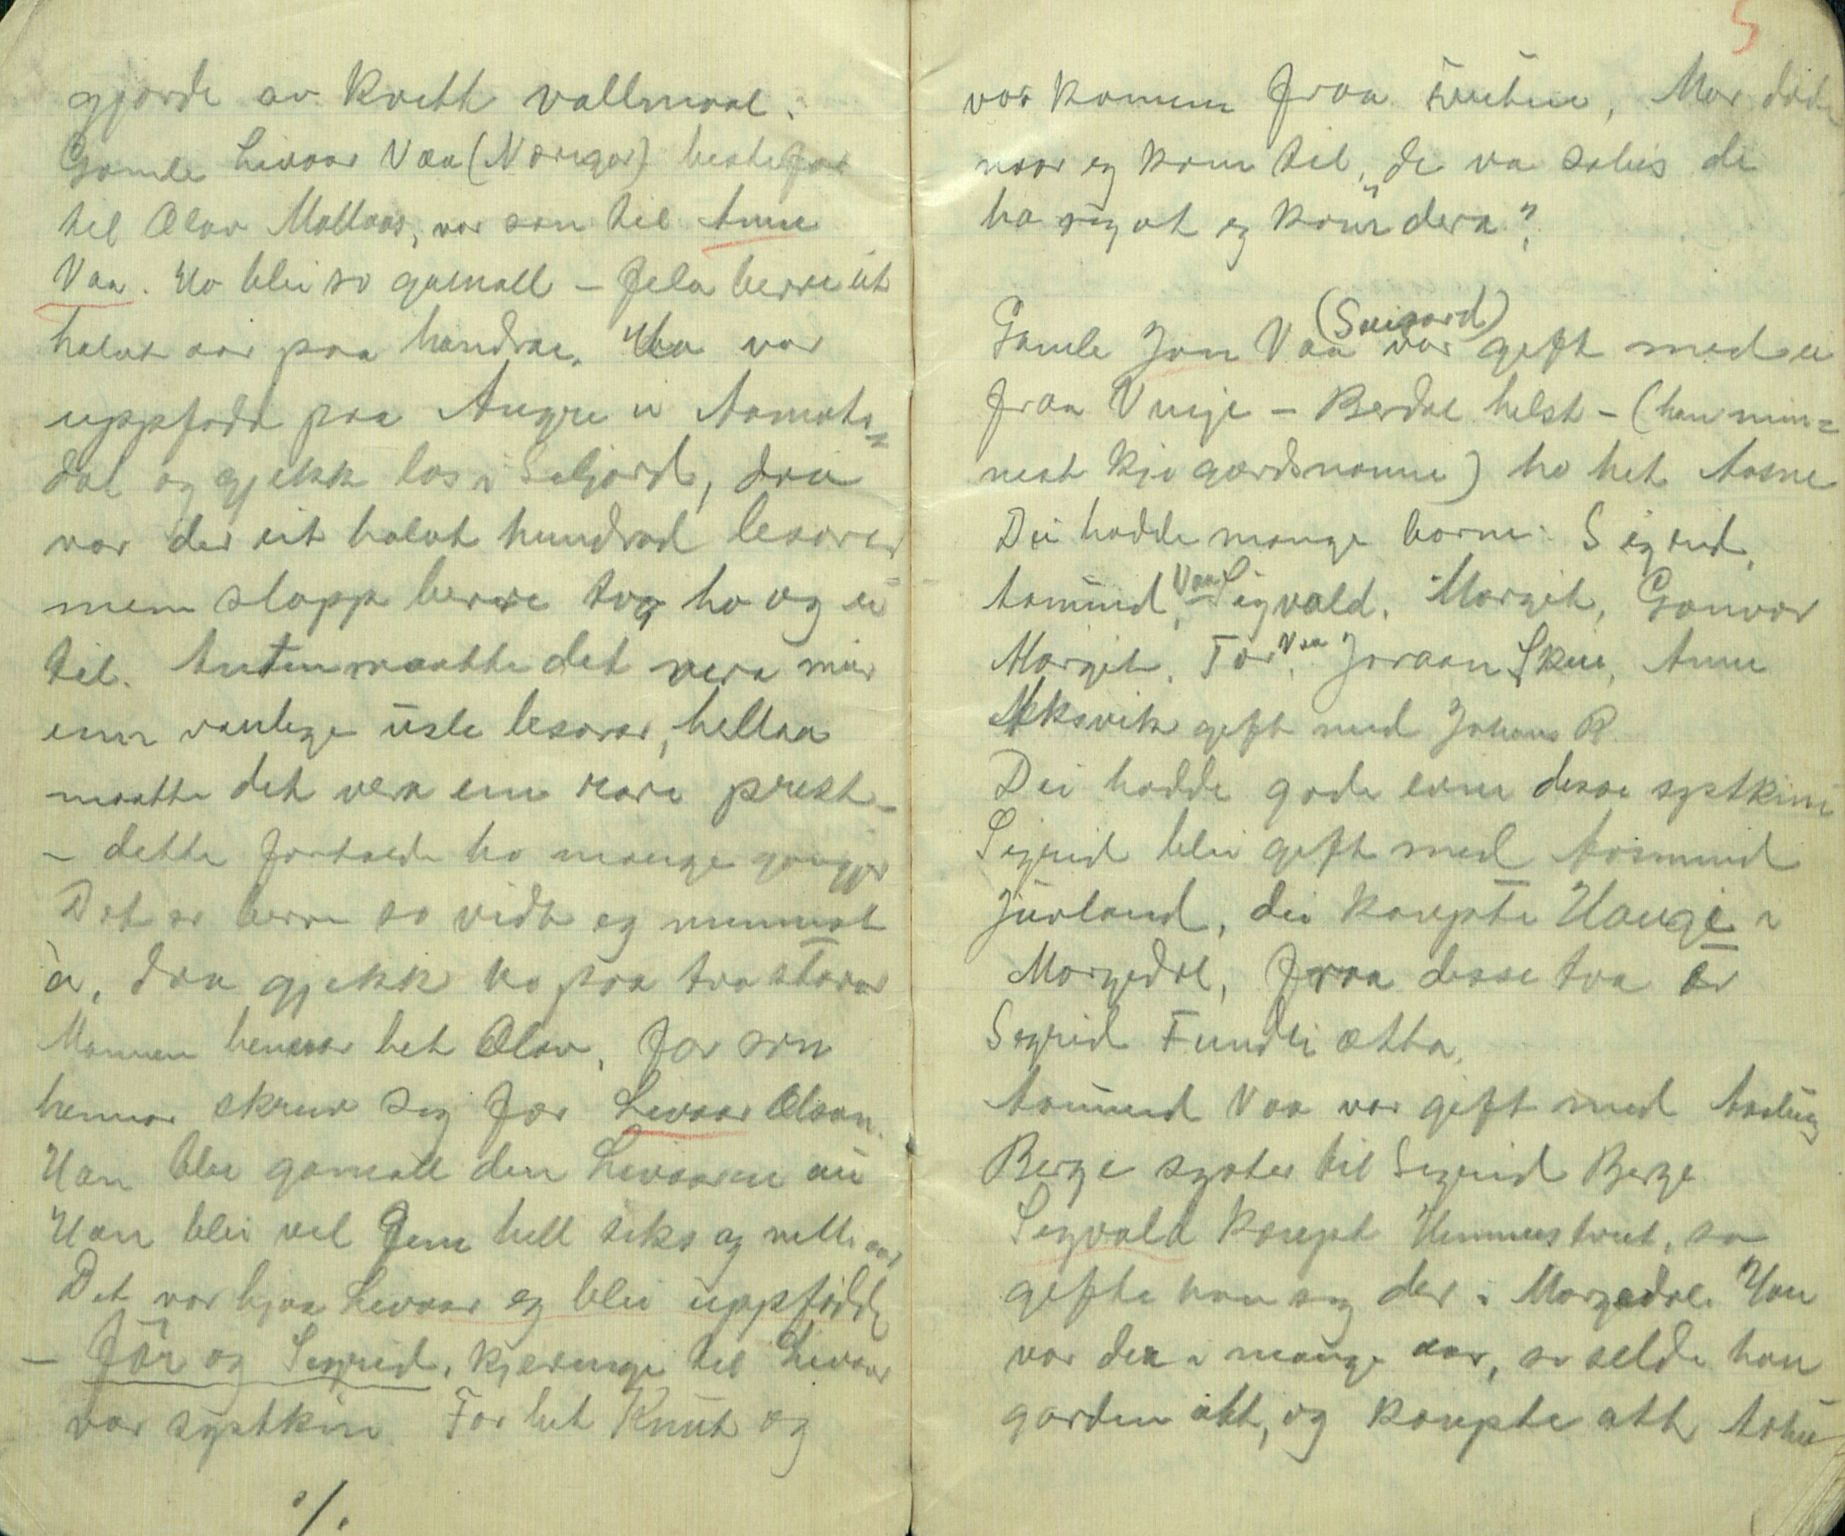 gjorde av kvitt vallmaal.
Gamle Livaar Vaa (Norigar) bestefar
til Olav Mallaas, var son til Anne
Vaa. Ho blei so gamall – fela berre eit
halvt aar paa hundrae. Ho var
uppfødd paa Augre i Aamots=
dal og gjekk las i Seljord, daa
var der eit halvt hundrad lesarar
men slapp berre tvo ho og ei
til. Anten maatte det vera meir
enn vanlege usle lesarar, hellaa
maatte det vera ein rare prest –
– dette fortalde ho mange gongjer
Det er berre so vidt eg minnest
'a, daa gjekk ho paa tvo stavar
Mannen hennar het Olav, for son
hennar skreiv seg for Livaar Olson.
Han blei gamall den Livaaren au
Han blei vel fem hell seks og netti aar
Det var hjaa Livaar eg blei uppfødde
– Far og Sigrid, kjeringe til Livaar
var systkin Far het Knut og
·/.
5
var komen fraa Mor døde
naar eg kom til, "de va soleis de
ha seg at eg kom dera".
(Suigard)
Gamle Jon Vaa var gift med ei
fraa Vinje – Berdal helst – (han min=
nest kje gardsnamne) ho het Aasne
Dei hadde mange borne: Sigrid,
Aamund, Vaa Sigvald, Margit, Gunvor
Margit, Tor, Vaa Joraan Skei, Anne
Neksvik gift med Johans R.
Dei hadde gode evne desse systkini
Sigrid blei gift med Aasmund
Juvland, dei kaupte Haugi i
Morgedal, fraa desse tvo er
Sigrid Fundli ætta.
Aamund Vaa var gift med Aaslaug
Berge syster til Sigrid Berge
Sigvald kaupt Himmestveit, so
gifte han seg der i Morgedal. Han
var der i mange aar, so selde han
garden att, og kaupte att